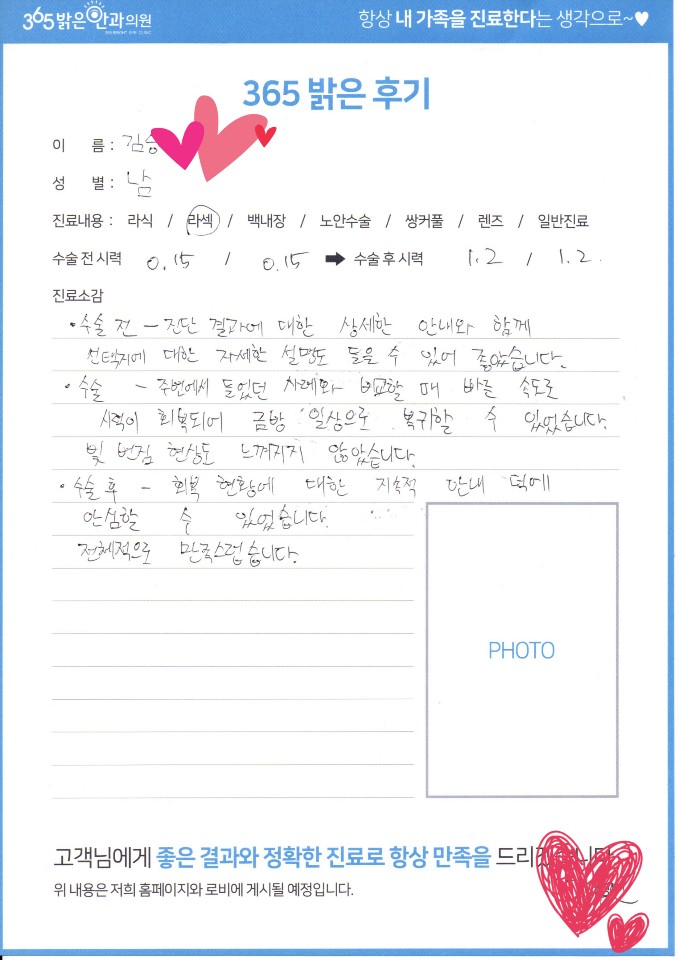 365밝은안과의원
365 BRIGHT EYE CLINIC
항상 내 가족을 진료한다는 생각으로~♥
365 밝은 후기
이 름 : 김승
성 별 : 남
진료내용 : 라식 / 라섹 / 백내장 / 노안수술 / 쌍커풀 / 렌즈 / 일반진료
수술 전 시력 0.15 / 0.15 ➡ 수술 후 시력 1.2 / 1.2.
진료소감
• 수술 전 - 진단 결과에 대한 상세한 안내와 함께
선택지에 대한 자세한 설명도 들을 수 있어 좋았습니다.
• 수술 - 주변에서 들었던 사례와 비교할 때 빠른 속도로
시력이 회복되어 금방 일상으로 복귀할 수 있었습니다.
빛 번짐 현상도 느껴지지 않았습니다.
• 수술 후 - 회복 현황에 대한 지속적 안내 덕에
안심할 수 있었습니다.
전체적으로 만족스럽습니다.
PHOTO
고객님에게 좋은 결과와 정확한 진료로 항상 만족을
위 내용은 저희 홈페이지와 로비에 게시될 예정입니다.